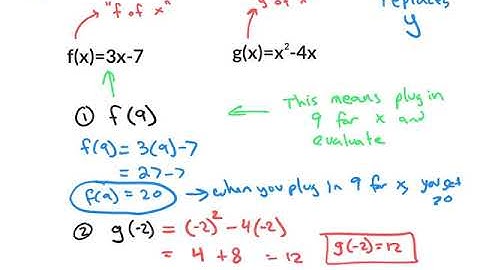 "f of x"
"g of x"
replaces
y
f(x)=3x-7
g(x)=x²-4x
① f(9)
This means plug in
9 for x and
evaluate
f(9) = 3(9)-7
= 27-7
f(9) = 20
when you plug in 9 for x, you get
20
② g(-2) = (-2)² - 4(-2)
= 4 + 8 = 12
g(-2) = 12